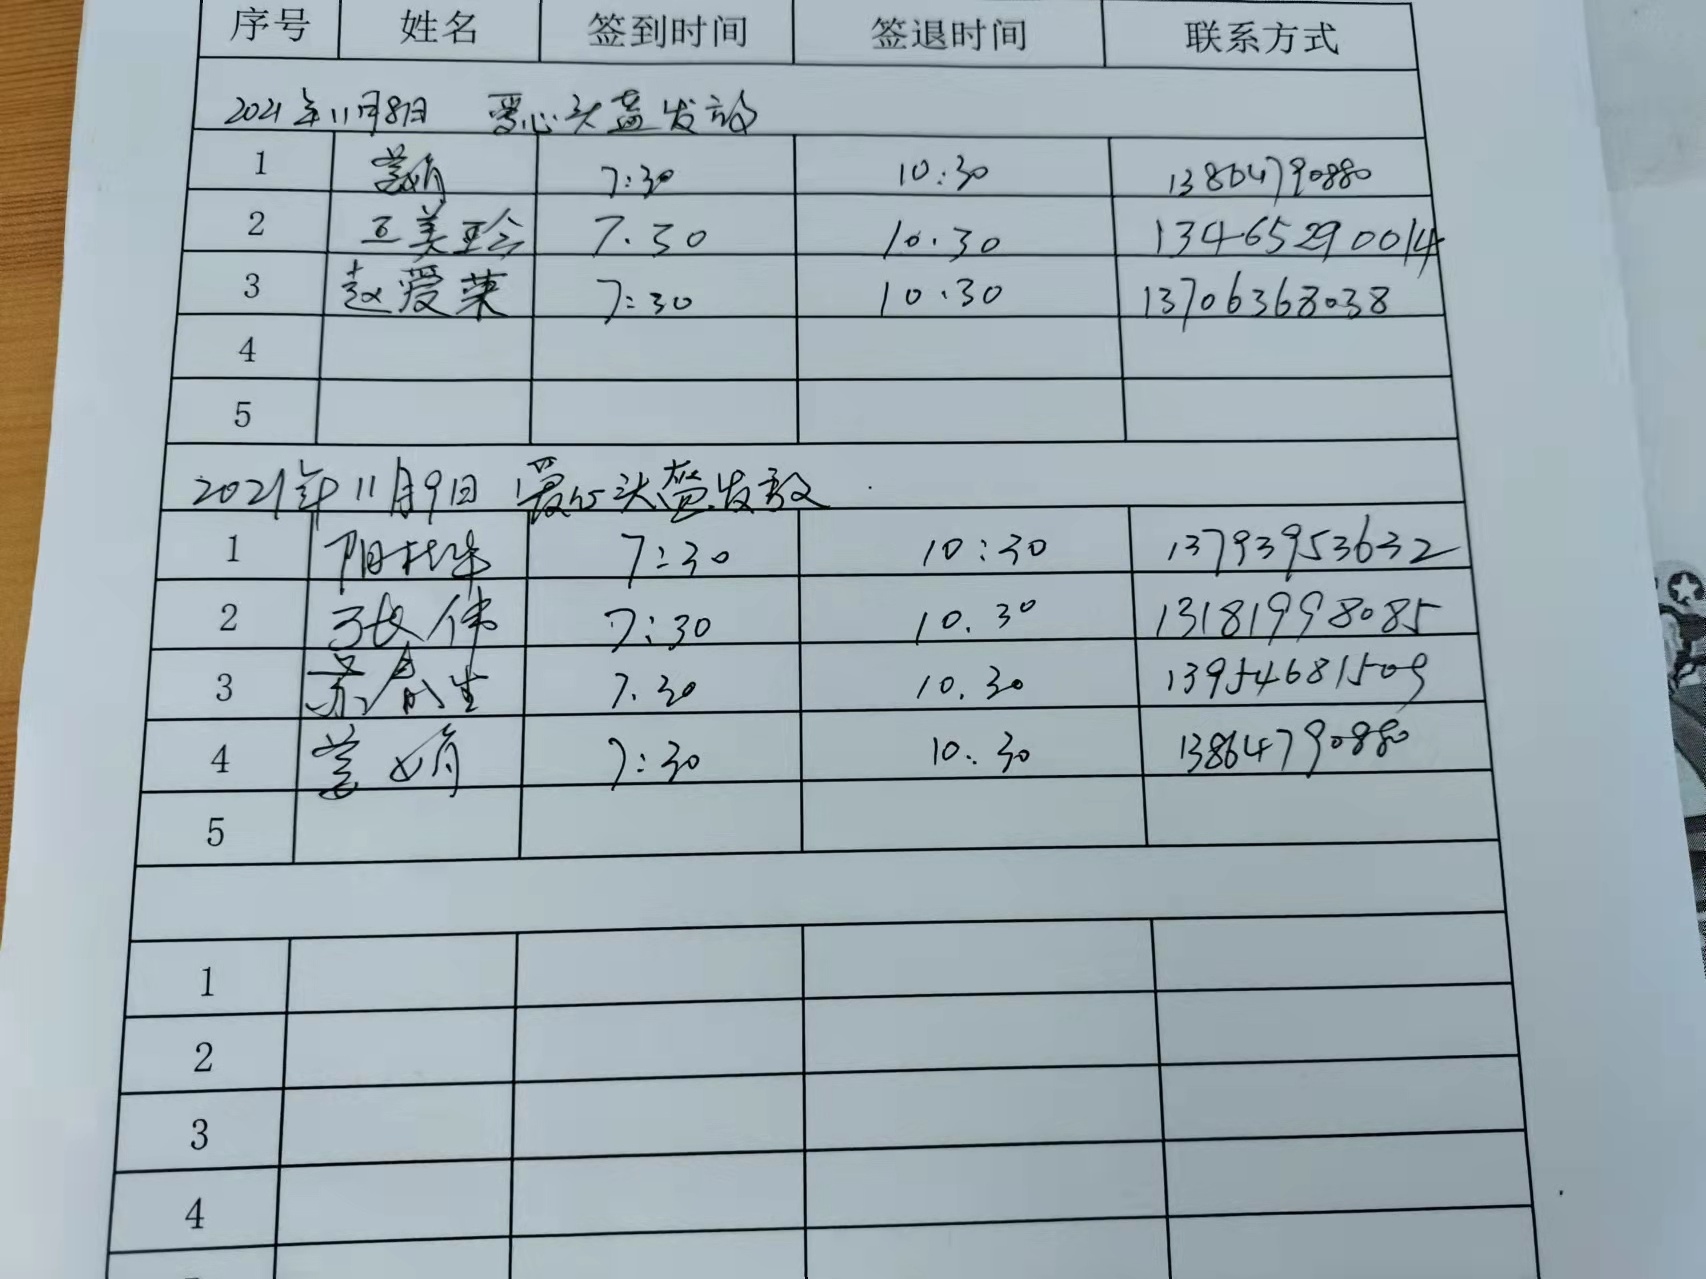 序号 姓名 签到时间 签退时间 联系方式
2021年11月8日 爱心头盔发放
1 7:30 10:30 13864790880
2 王美珍 7.30 10.30 13465290014
3 赵爱荣 7:30 10.30 13706368038
4
5
2021年11月9日 爱心头盔发放
1 7:30 10:30 13793953632
2 张伟 7:30 10.30 13181998085
3 苏春生 7.30 10.30 13954681509
4 7:30 10.30 13864790880
5
1
2
3
4